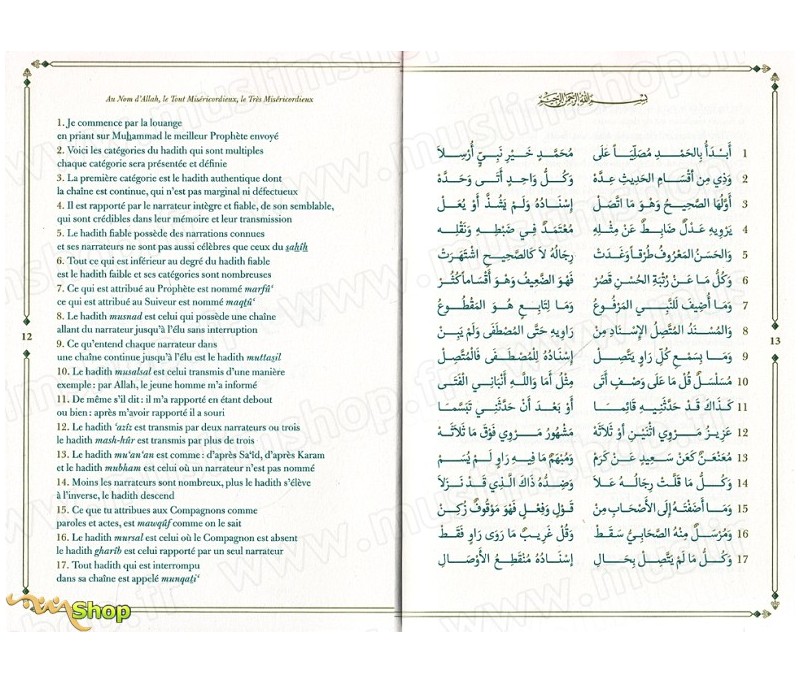 Au Nom d'Allah, le Tout Miséricordieux, le Très Miséricordieux
1. Je commence par la louange
en priant sur Muḥammad le meilleur Prophète envoyé
2. Voici les catégories du hadith qui sont multiples
chaque catégorie sera présentée et définie
3. La première catégorie est le hadith authentique dont
la chaîne est continue, qui n'est pas marginal ni défectueux
4. Il est rapporté par le narrateur intègre et fiable, de son semblable,
qui sont crédibles dans leur mémoire et leur transmission
5. Le hadith fiable possède des narrations connues
et ses narrateurs ne sont pas aussi célèbres que ceux du ṣaḥīḥ
6. Tout ce qui est inférieur au degré du hadith fiable
est le hadith faible et ses catégories sont nombreuses
7. Ce qui est attribué au Prophète est nommé marfū‘
ce qui est attribué au Suiveur est nommé maqṭū‘
8. Le hadith musnad est celui qui possède une chaîne
allant du narrateur jusqu'à l'élu sans interruption
9. Ce qu'entend chaque narrateur dans
une chaîne continue jusqu'à l'élu est le hadith muttaṣil
10. Le hadith musalsal est celui transmis d'une manière
exemple : par Allah, le jeune homme m'a informé
11. De même s'il dit : il m'a rapporté en étant debout
ou bien : après m'avoir rapporté il a souri
12. Le hadith ‘azīz est transmis par deux narrateurs ou trois
le hadith mash-hūr est transmis par plus de trois
13. Le hadith mu‘an‘an est comme : d'après Sa‘īd, d'après Karam
et le hadith mubham est celui où un narrateur n'est pas nommé
14. Moins les narrateurs sont nombreux, plus le hadith s'élève
à l'inverse, le hadith descend
15. Ce que tu attribues aux Compagnons comme
paroles et actes, est mawqūf comme on le sait
16. Le hadith mursal est celui où le Compagnon est absent
le hadith gharīb est celui rapporté par un seul narrateur
17. Tout hadith qui est interrompu
dans sa chaîne est appelé munqaṭi‘
12
بِسْمِ اللَّهِ الرَّحْمَنِ الرَّحِيمِ
1 أَبْدَأُ بِالحَمْدِ مُصَلِّيًا عَلَى مُحَمَّدٍ خَيْرِ نَبِيٍّ أُرْسِلَا
2 وَذِي مِنَ أقْسَامِ الحَدِيثِ عِدَّهْ وَكُلُّ وَاحِدٍ أَتَى وَحَدَّهْ
3 أَوَّلُهَا الصَّحِيحُ وَهْوَ مَا اتَّصَلْ إِسْنَادُهُ وَلَمْ يَشُذَّ أَوْ يُعَلْ
4 يَرْوِيهِ عَدْلٌ ضَابِطٌ عَنْ مِثْلِهِ مُعْتَمَدٌ فِي ضَبْطِهِ وَنَقْلِهِ
5 وَالحَسَنُ المَعْرُوفُ طُرْقًا وَغَدَتْ رِجَالُهُ لَا كَالصَّحِيحِ اشْتَهَرَتْ
6 وَكُلُّ مَا عَنْ رُتْبَةِ الحُسْنِ قَصُرْ فَهْوَ الضَّعِيفُ وَهْوَ أَقْسَامًا كَثُرْ
7 وَمَا أُضِيفَ لِلنَّبِي المَرْفُوعُ وَمَا لِتَابِعٍ هُوَ المَقْطُوعُ
8 وَالمُسْنَدُ المُتَّصِلُ الإِسْنَادِ مِنْ رَاوِيهِ حَتَّى المُصْطَفَى وَلَمْ يَبِنْ
9 وَمَا بِسَمْعِ كُلِّ رَاوٍ يَتَّصِلْ إِسْنَادُهُ لِلْمُصْطَفَى فَالمُتَّصِلْ
10 مُسَلْسَلٌ قُلْ مَا عَلَى وَصْفٍ أَتَى مِثْلُ أَمَا وَاللَّهِ أَنْبَانِي الفَتَى
11 كَذَاكَ قَدْ حَدَّثَنِيهِ قَائِمَا أَوْ بَعْدَ أَنْ حَدَّثَنِي تَبَسَّمَا
12 عَزِيزُ مَرْوِي اثْنَيْنِ أَوْ ثَلَاثَهْ مَشْهُورُ مَرْوِي فَوْقَ مَا ثَلَاثَهْ
13 مُعَنْعَنٌ كَعَنْ سَعِيدٍ عَنْ كَرَمْ وَمُبْهَمٌ مَا فِيهِ رَاوٍ لَمْ يُسَمْ
14 وَكُلُّ مَا قَلَّتْ رِجَالُهُ عَلَا وَضِدُّهُ ذَاكَ الَّذِي قَدْ نَزَلَا
15 وَمَا أَضَفْتَهُ إِلَى الأَصْحَابِ مِنْ قَوْلٍ وَفِعْلٍ فَهْوَ مَوْقُوفٌ زُكِنْ
16 وَمُرْسَلٌ مِنْهُ الصَّحَابِيُّ سَقَطْ وَقُلْ غَرِيبٌ مَا رَوَى رَاوٍ فَقَطْ
17 وَكُلُّ مَا لَمْ يَتَّصِلْ بِحَالِ إِسْنَادُهُ مُنْقَطِعُ الأَوْصَالِ
13
Shop
www.muslimshop.fr